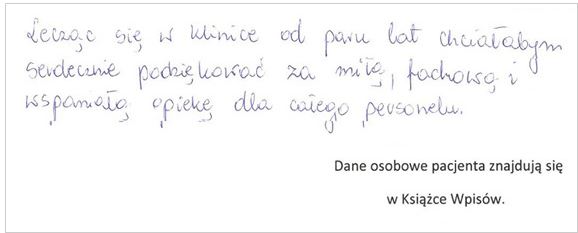 Lecząc się w klinice od paru lat chciałabym
serdecznie podziękować za miłą, fachową i
wspaniałą opiekę dla całego personelu.
Dane osobowe pacjenta znajdują się
w Książce Wpisów.